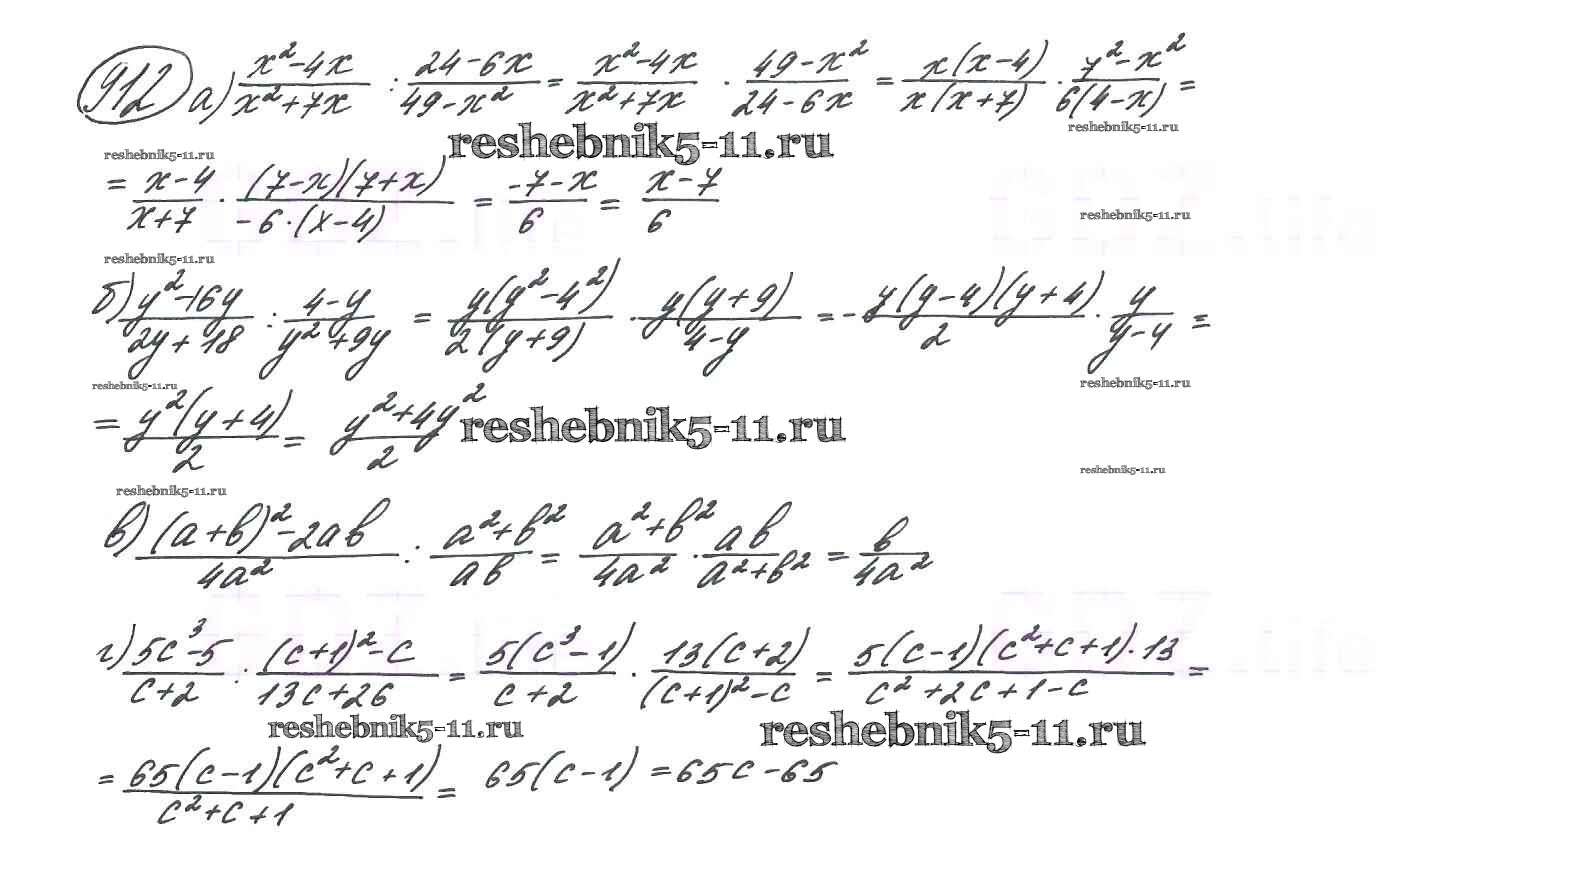 912 а) (x²-4x)/(x²+7x) : (24-6x)/(49-x²) = (x²-4x)/(x²+7x) · (49-x²)/(24-6x) = (x(x-4))/(x(x+7)) · (7²-x²)/(6(4-x)) =
reshebnik5-11.ru
reshebnik5-11.ru
reshebnik5-11.ru
= (x-4)/(x+7) · ((7-x)(7+x))/(-6·(x-4)) = (-7-x)/6 = (x-7)/6
reshebnik5-11.ru
reshebnik5-11.ru
б) (y²-16y)/(2y+18) : (4-y)/(y²+9y) = (y(y²-4²))/(2(y+9)) · (y(y+9))/(4-y) = - (y(y-4)(y+4))/2 · y/(y-4) =
reshebnik5-11.ru
reshebnik5-11.ru
= (y²(y+4))/2 = (y²+4y²)/2
reshebnik5-11.ru
reshebnik5-11.ru
reshebnik5-11.ru
в) ((a+b)²-2ab)/(4a²) : (a²+b²)/(ab) = (a²+b²)/(4a²) · (ab)/(a²+b²) = b/(4a²)
г) (5c³-5)/(c+2) : ((c+1)²-c)/(13c+26) = (5(c³-1))/(c+2) · (13(c+2))/((c+1)²-c) = (5(c-1)(c²+c+1)·13)/(c²+2c+1-c) =
reshebnik5-11.ru
reshebnik5-11.ru
= (65(c-1)(c²+c+1))/(c²+c+1) = 65(c-1) = 65c-65